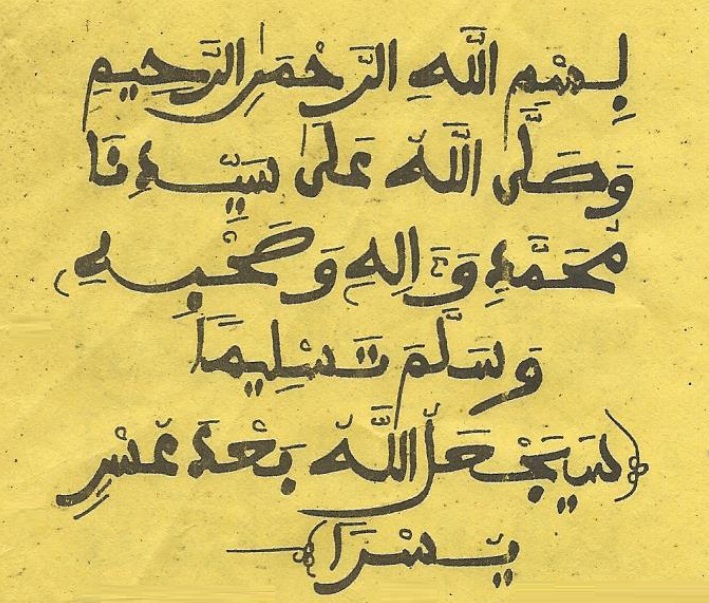 بِسْمِ اللَّهِ الرَّحْمَٰنِ الرَّحِيمِ
وَصَلَّى اللَّهُ عَلَىٰ سَيِّدِنَا
مُحَمَّدٍ وَءَالِهِ وَصَحْبِهِ
وَسَلَّمَ تَسْلِيمًا
﴿سَيَجْعَلُ اللَّهُ بَعْدَ عُسْرٍ
يُسْرًا﴾